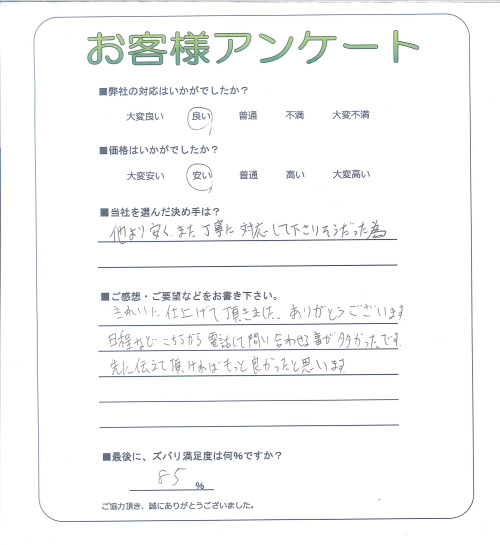 お客様アンケート
■弊社の対応はいかがでしたか？
大変良い 良い 普通 不満 大変不満
■価格はいかがでしたか？
大変安い 安い 普通 高い 大変高い
■当社を選んだ決め手は？
他より安く、また丁寧に対応して下さりそうだった為
■ご感想・ご要望などをお書き下さい。
きれいに仕上げて頂きました、ありがとうございます
日程など こちらから電話して問い合わせる事が多かったです。
先に伝えて頂ければもっと良かったと思います
■最後に、ズバリ満足度は何％ですか？
85 %
ご協力頂き、誠にありがとうございました。